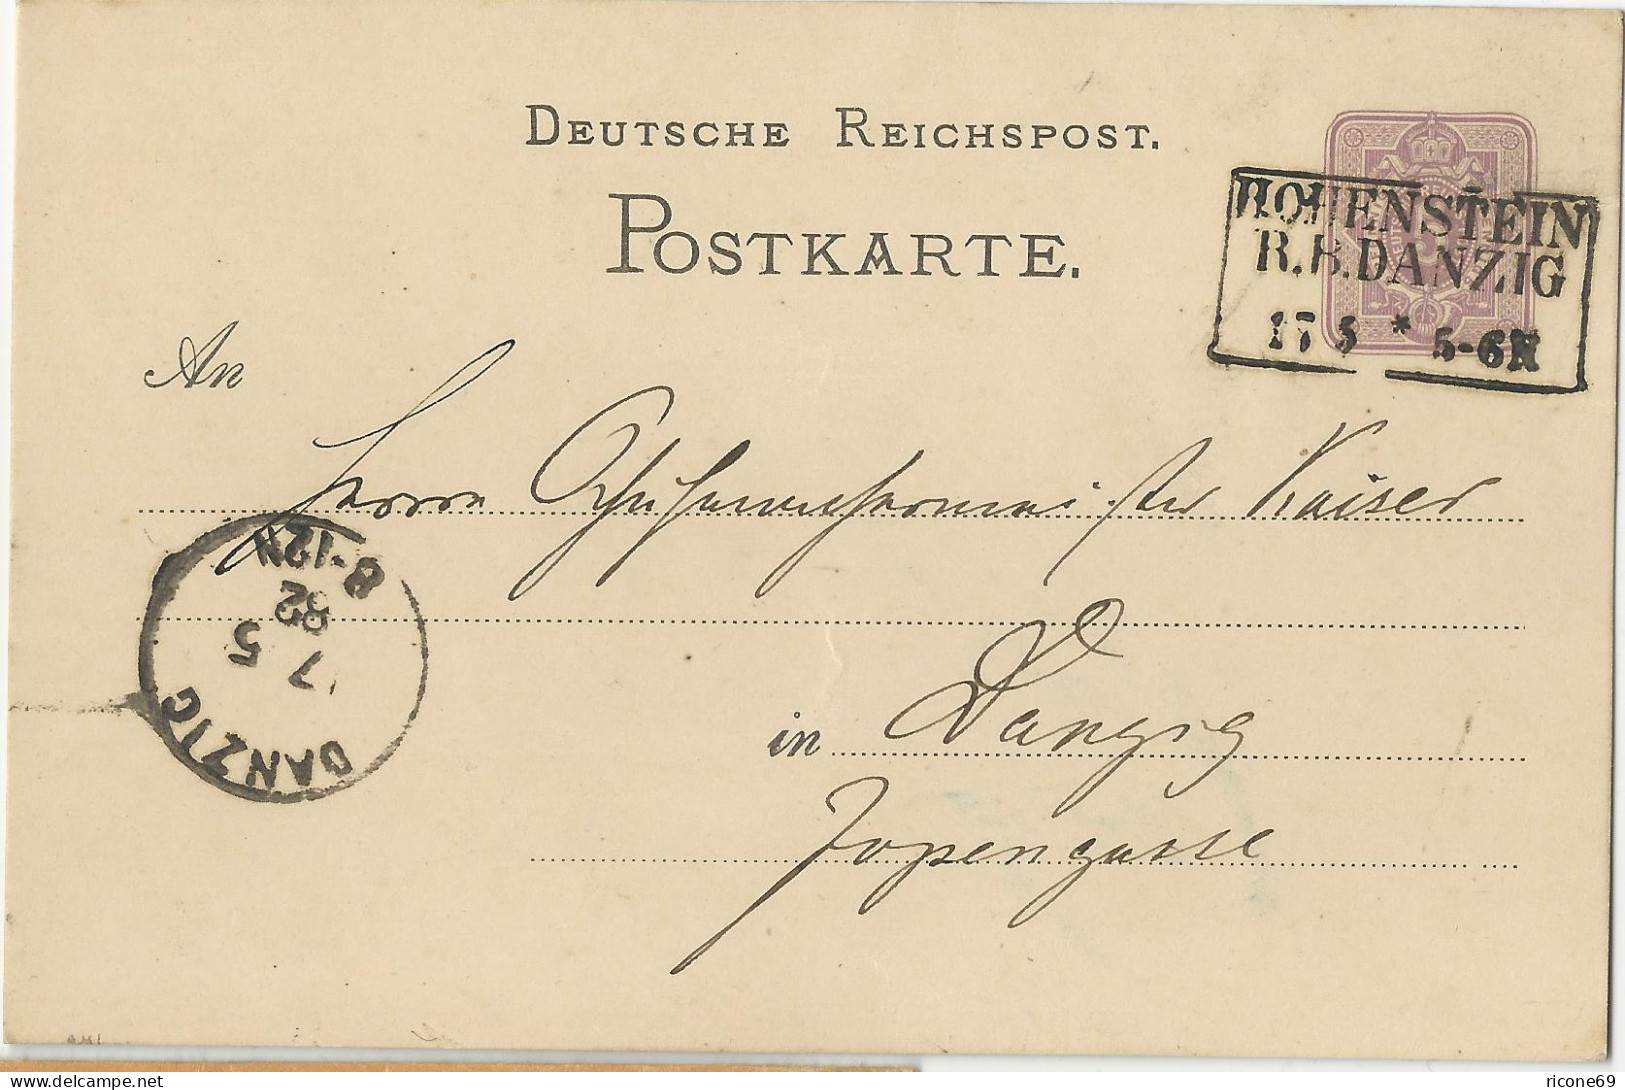 DEUTSCHE REICHSPOST.
POSTKARTE.
HOHENSTEIN
R.B.DANZIG
17 5 * 5-6N
An
Herrn Kaiser
8-12N
82
17 5
DANZIG
in Danzig
Jopengasse
delcampe.net
ricone69